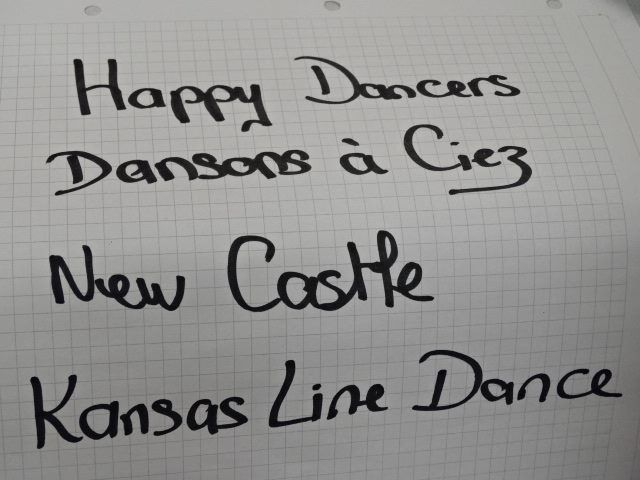 Happy Dancers
Dansons à Ciez
New Castle
Kansas Line Dance